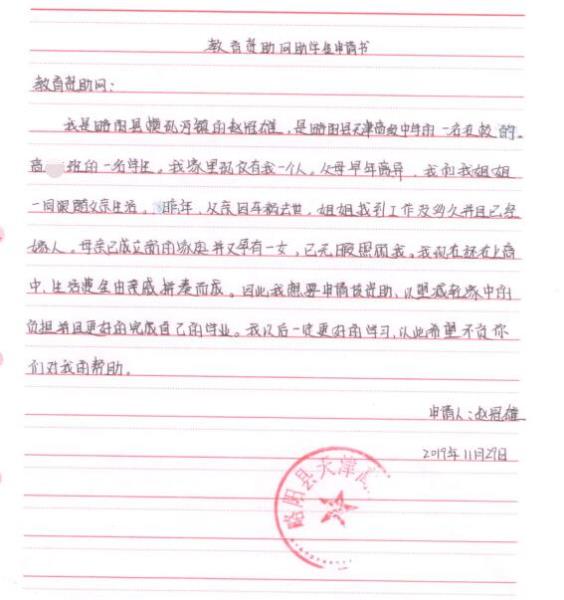 教育帮助网助学金申请书
教育帮助网：
我是略阳县横现河镇的赵冠雄，是略阳县天津高级中学的一名在校的。
高 班的一名学生。我家里现仅有我一个人。父母早年离异，我和我姐姐
一同跟随父亲生活。昨年，父亲因车祸去世，姐姐找到工作没多久并且已经
嫁人。母亲已成立新的家庭并又孕有一女，已无暇照顾我。我现在还在上高
中，生活费全由亲戚拼凑而成。因此我想要申请该资助，以望减轻家中的
负担并且更好的完成自己的学业。我以后一定更好的学习，以此希望不负你
们对我的帮助。
申请人：赵冠雄
2019年11月29日
略阳县天津高